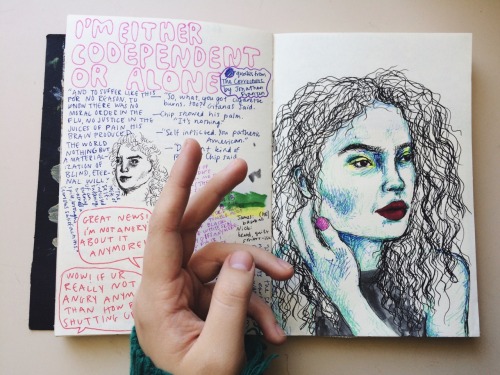 I'M EITHER
CODEPENDENT
OR ALONE
quotes from
The Corrections
by Jonathan
Franzen
"AND TO SUFFER LIKE THIS
FOR NO REASON. TO
KNOW THERE WAS NO
MORAL ORDER IN THE
FLU, NO JUSTICE IN THE
JUICES OF PAIN HIS
BRAIN PRODUCED.
THE WORLD
NOTHING BUT
A MATERIAL-
IZATION OF
BLIND, ETER-
NAL WILL."
—"So, what, you got cigarette
burns, too?" Gitanas said.
—Chip showed his palm.
"It's nothing."
—"Self inflicted. You pathetic
American."
kind
Chip said.
GREAT NEWS!
I'M NOT ANGRY
ABOUT IT
ANYMORE!
WOW! IF UR
REALLY NOT
ANGRY
THAN HOW
SHUTTING